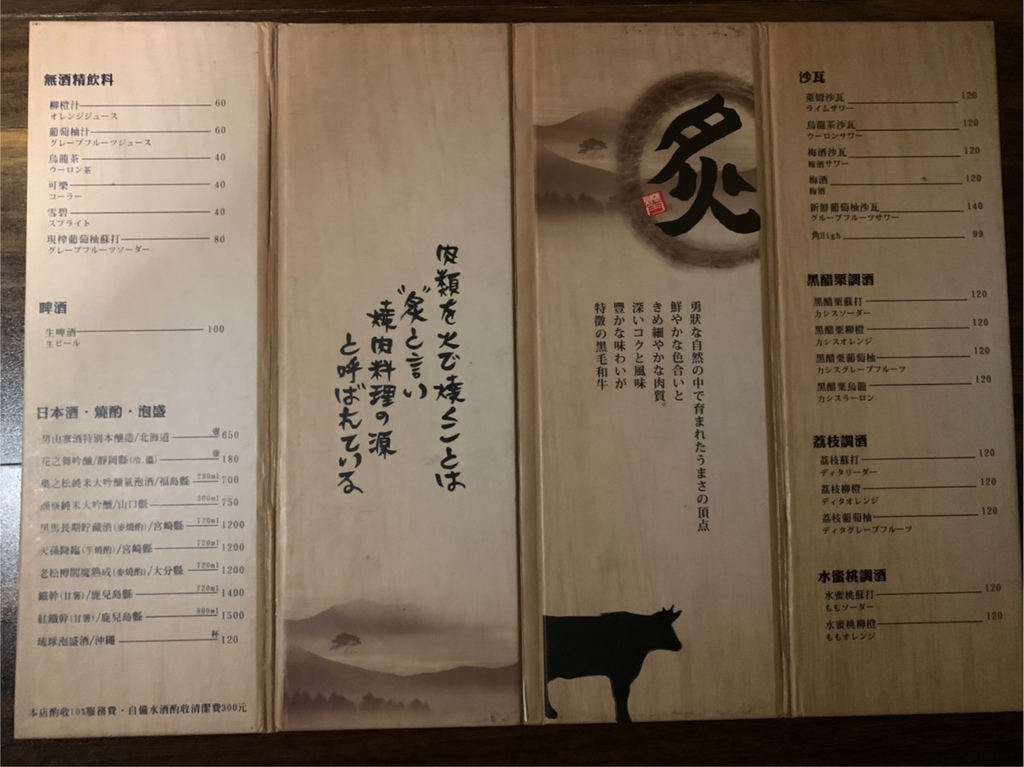 無酒精飲料
柳橙汁 60
オレンジジュース
葡萄柚汁 60
グレープフルーツジュース
烏龍茶 40
ウーロン茶
可樂 40
コーラー
雪碧 40
スプライト
現榨葡萄柚蘇打 80
グレープフルーツソーダー
啤酒
生啤酒 100
生ビール
日本酒・燒酌・泡盛
男山寒酒特別本釀造/北海道 650
花之舞吟釀/靜岡縣(冷.溫) 180
奧之松純米大吟釀氣泡酒/福島縣 280ml 700
純米大吟釀/山口縣 750
黑馬長期貯藏酒(麥燒酌)/宮崎縣 720ml 1200
天孫降臨(芋燒酌)/宮崎縣 720ml 1200
老松樽閻魔熟成(麥燒酌)/大分縣 720ml 1200
鐵幹(甘薯)/鹿兒島縣 720ml 1400
紅鐵幹(甘薯)/鹿兒島縣 900ml 1500
琉球泡盛酒/沖繩 杯 120
本店酌收10%服務費・自備水酒酌收清潔費300元
肉類を火で焼くことは
"炙"と言い
焼肉料理の源
と呼ばれている
炙
勇狀な自然の中で育まれたうまさの頂点
鮮やかな色合いと
きめ細やかな肉質。
深いコクと風味
豊かな味わいが
特徴の黒毛和牛
沙瓦
萊姆沙瓦 120
ライムサワー
烏龍茶沙瓦 120
ウーロンサワー
梅酒沙瓦 120
梅酒サワー
梅酒 120
梅酒
新鮮葡萄柚沙瓦 140
グループフルーツサワー
角High 99
黑醋栗調酒
黑醋栗蘇打 120
カシスソーダー
黑醋栗柳橙 120
カシスオレンジ
黑醋栗葡萄柚 120
カシスグレープフルーツ
黑醋栗烏龍 120
カシスラーロン
荔枝調酒
荔枝蘇打 120
ディタリーダー
荔枝柳橙 120
ディタオレンジ
荔枝葡萄柚 120
ディタグレープフルーツ
水蜜桃調酒
水蜜桃蘇打 120
ももソーダー
水蜜桃柳橙 120
ももオレンジ